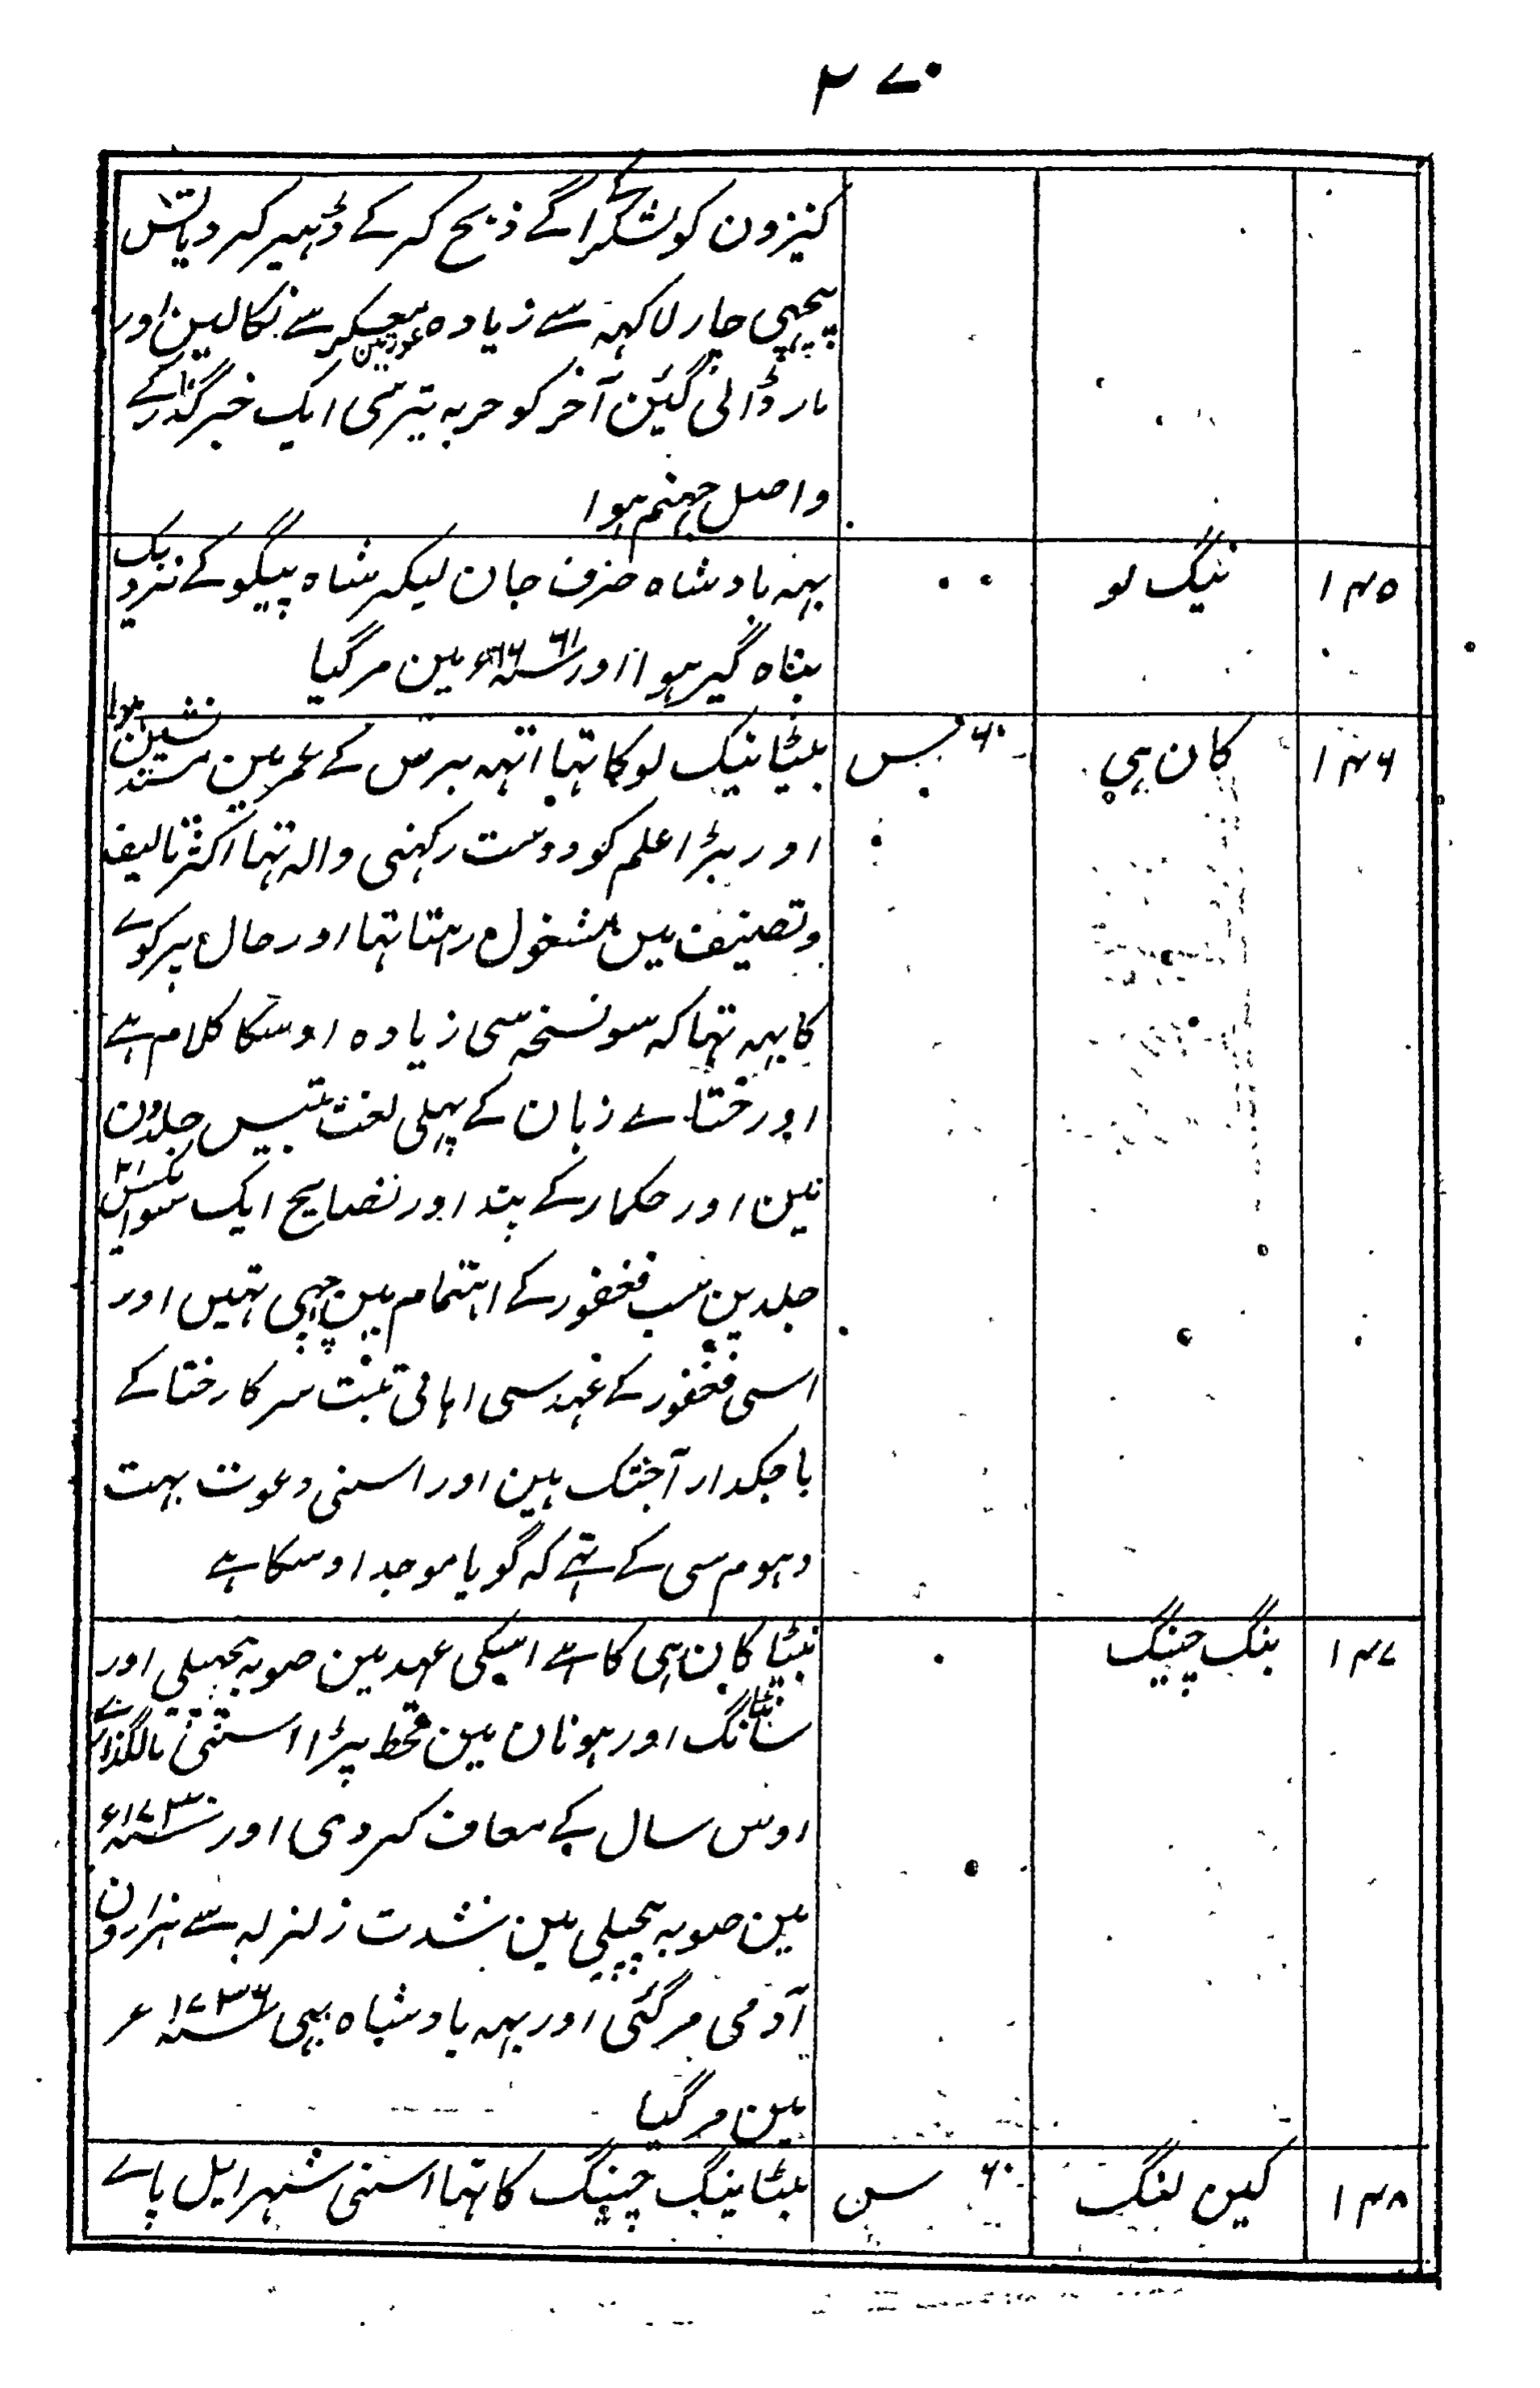 ۲۷۰
کنیزون کو لشکر کے آگے ذبح کر کے ڈہیر کر دیا تس
پیچہی چار لاکہہ سے زیادہ عورتین معسکر سے نکالین اور
مار ڈالی گئین آخر کو حربہ تیر سی ایک خبر گذار کے
واصل جہنم ہوا
۱۴۵ ینگ لو ۰۰ یہہ بادشاہ صرف جان لیکر شاہ پیگو کے نزدیک
پناہ گیر ہوا اور سنہ ۱۶۶۱ء مین مر گیا
۱۴۶ کان ہی ۶۰ برس بیٹا ینگ لو کا تہا اٹہہ برس کے عمر مین مسند نشین ہوا
اور بڑا علم کو دوست رکہنی والہ تہا اکثر تالیف
و تصنیف مین مشغول رہتا تہا اور حال پر گوے
کا یہہ تہا کہ سو نسخہ سی زیادہ اوسکا کلام ہے
اور ختاے زبان کے پہلی لغت بتیس جلدون
مین اور حکمار کے پند اور نصایح ایک سو اکیس
جلدین سب فغفور کے اہتمام مین چہپی تہیں اور
اسی فغفور کے عہد سی اہالی تبت سرکار ختا کے
باجگدار آجتک ہین اور اسنی دعوت بہت
دہوم سی کے تہے کہ گویا موجد اوسکا ہے
۱۴۷ ینگ چینگ ۰ بیٹا کان ہی کا ہے اسیکی عہد مین صوبہ پچیلی اور
شانٹانگ اور ہونان مین قحط پڑا اسنی مالگذارے
اوس سال کے معاف کر دی اور سنہ ۱۷۳۰ء
مین صوبہ پچیلی مین شدت زلزلہ سے ہزارون
آدمی مر گئی اور یہہ بادشاہ بہی سنہ ۱۷۳۶ء
مین مر گیا
۱۴۸ کین لنگ ۶۰ سن بیٹا ینگ چینگ کا تہا اسنی شہر ایل پاے